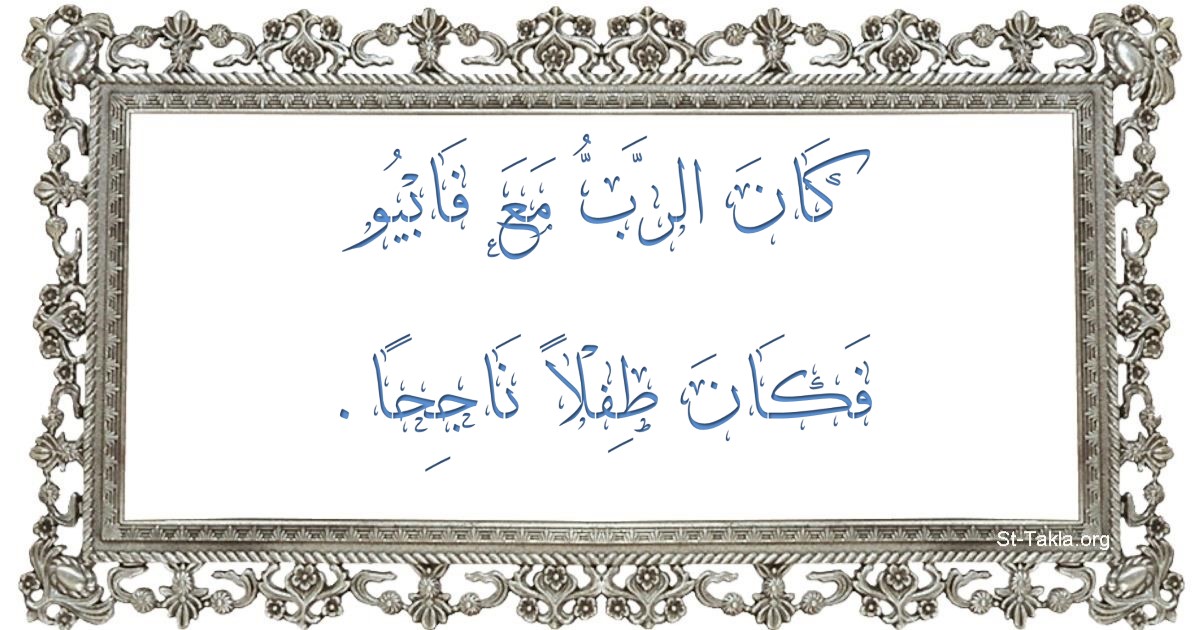 كَانَ الرَّبُّ مَعَ فَابْيُو
فَكَانَ طِفْلاً نَاجِحًا .
St-Takla.org